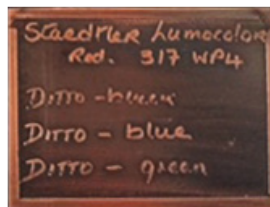 Staedtler Lumocolor
Red. 317 WP4
DITTO -
DITTO - blue
DITTO - green